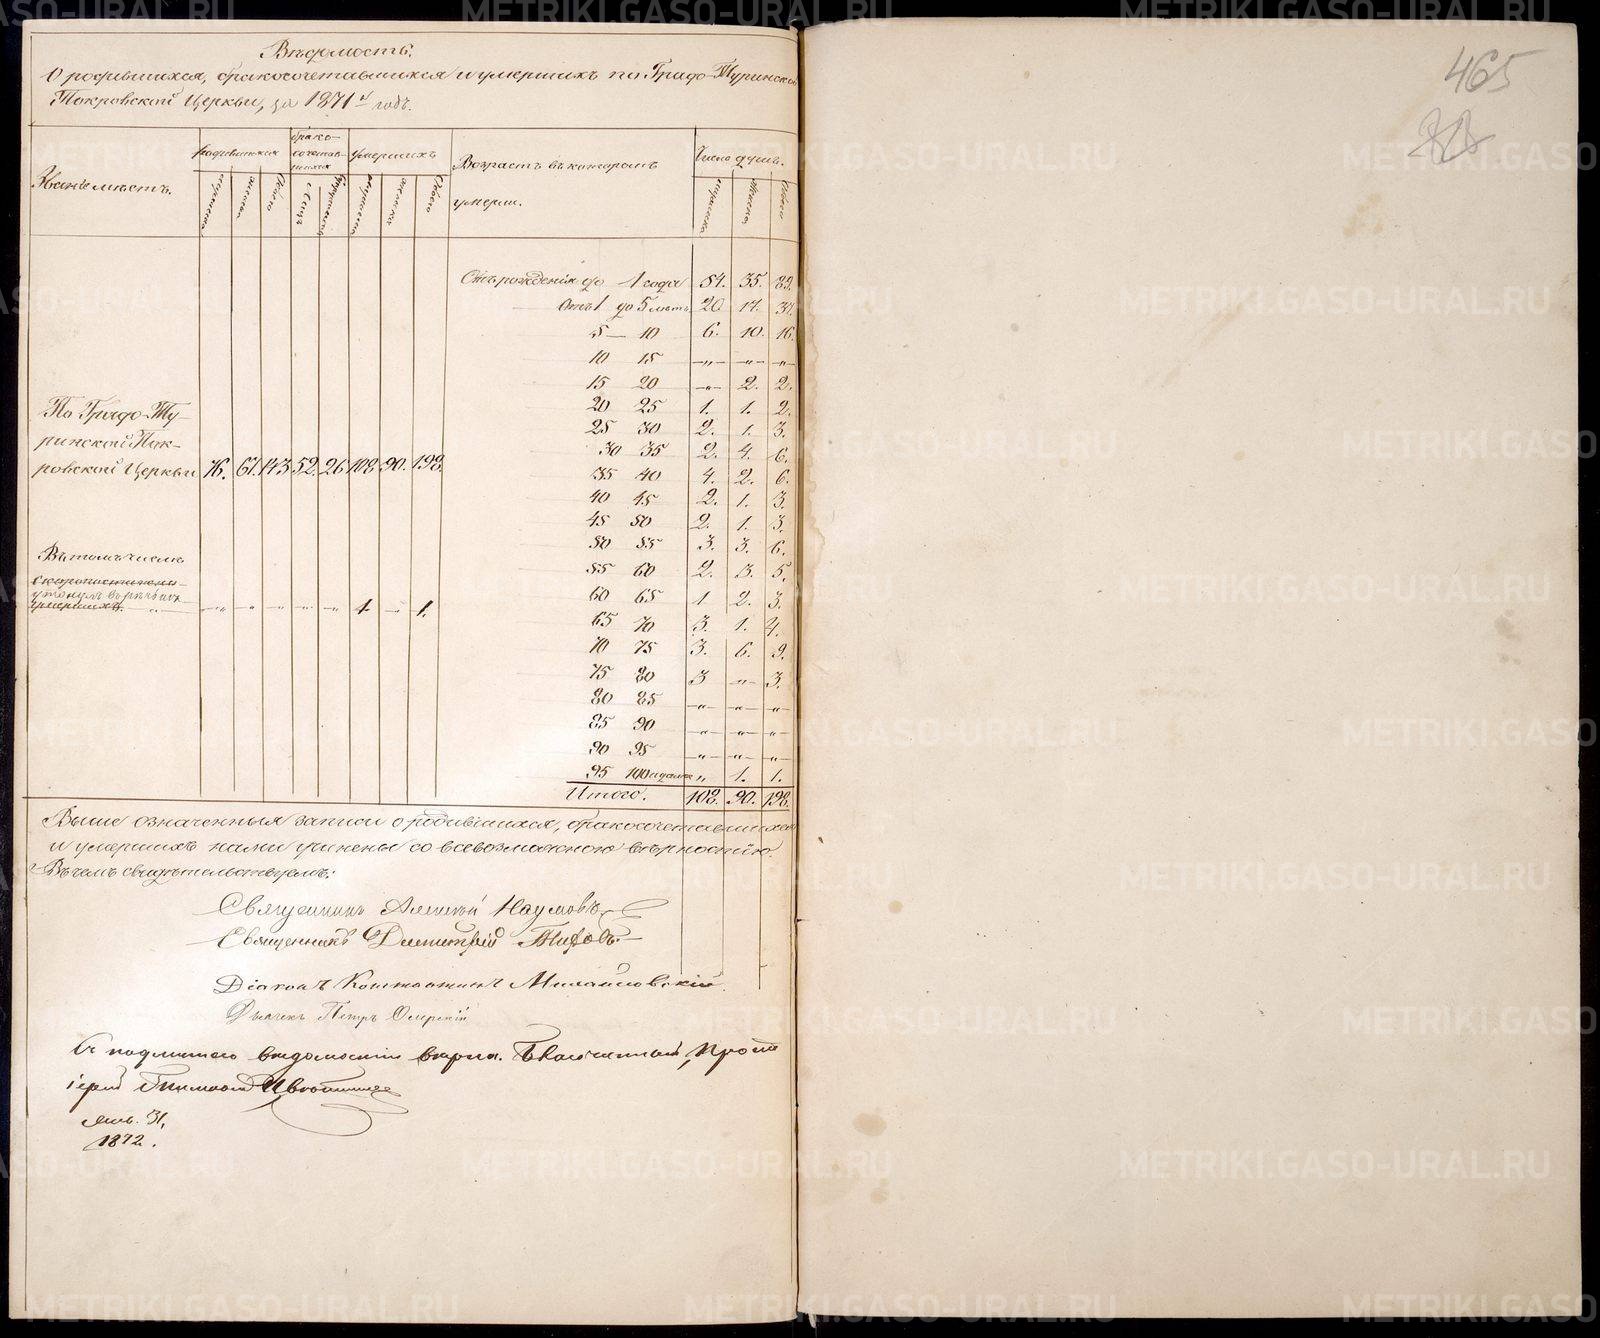 Вѣдомость,
О родившихся, бракосочетавшихся и умершихъ по Градо-Туринской
Покровской Церкви, за 1871й годъ.
Званіе мѣстъ.
родившихся
брако-
сочетав-
шихся
умершихъ
Возрастъ въ которомъ
умерли.
Число душъ.
мужеска
женска
Обоего
мужеска
женска
Обоего
мужеска
женска
Обоего
Отъ рожденія до 1 года 54. 35. 89.
Отъ 1 до 5 лѣтъ 20. 17. 37.
5 — 10 6. 10. 16.
10 15 —„— —„— —„—
15 20 —„— 2. 2.
20 25 1. 1. 2.
25 30 2. 1. 3.
30 35 2. 4. 6.
35 40 4. 2. 6.
40 45 2. 1. 3.
45 50 2. 1. 3.
50 55 3. 3. 6.
55 60 2. 3. 5.
60 65 1 2. 3.
65 70 3. 1. 4.
70 75 3. 6. 9.
75 80 3 —„— 3.
80 85 —„— —„— —„—
85 90 —„— —„— —„—
90 95 —„— —„— —„—
95 100 и далѣе „ 1. 1.
Итого. 108. 90. 198.
По Градо-Ту-
ринской Пок-
ровской Церкви 76. 67. 143. 52. 26. 108. 90. 198.
Въ томъ числѣ
скоропостижно
умершихъ —„— „ —„— —„— —„— 1. —„— 1.
Выше означенныя записи о родившихся, бракосочетавшихся
и умершихъ нами учинены со всевозможною вѣрностію.
Въ чемъ свидѣтельствуемъ:
Священникъ Алексѣй Наумовъ
Священникъ Димитрій Тифовъ
Діаконъ Константинъ Милашовскій
Дьячекъ Петръ
Съ подлинною вѣдомостію вѣрна. Благочинный, Прото
іерей
Янв. 31,
1872.
465
METRIKI.GASO-URAL.RU